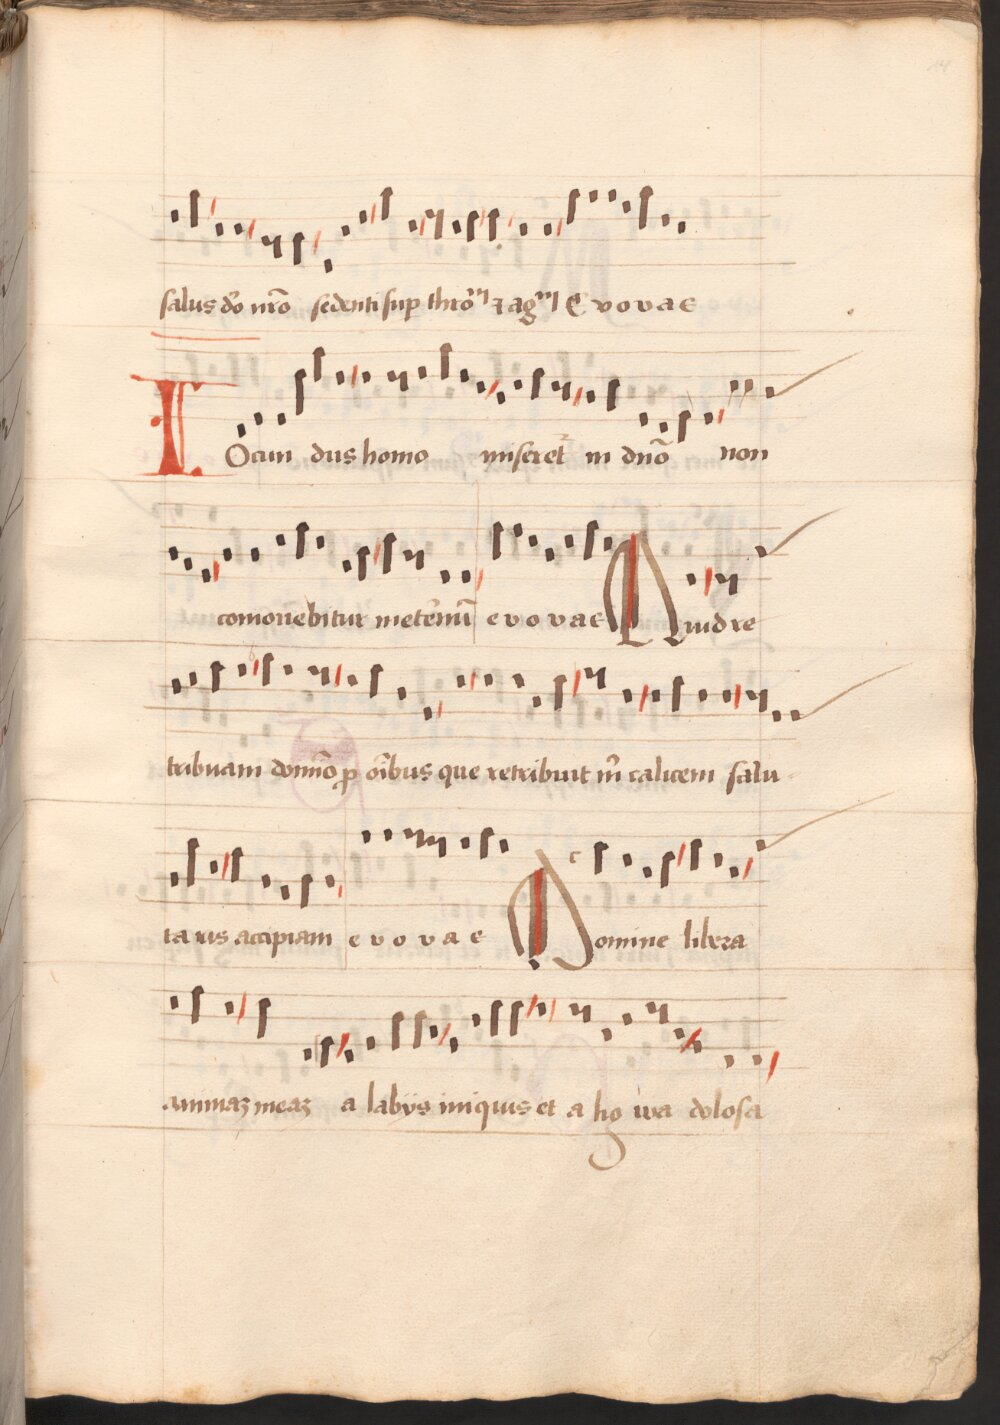 salus dō nr̄o sedenti sup thrō ⁊ ag E v o v a e
IOcun dus homo miseret in dn̄o non
comonebitur in etērnū e v o v a e Quid re
tribuam domīo p oīb̄us que retribuit m̄ calicem salu-
taris accipiam e v o v a e Domine libera
animaꝫ meaꝫ a labijs iniquis et a lig wa dolosa